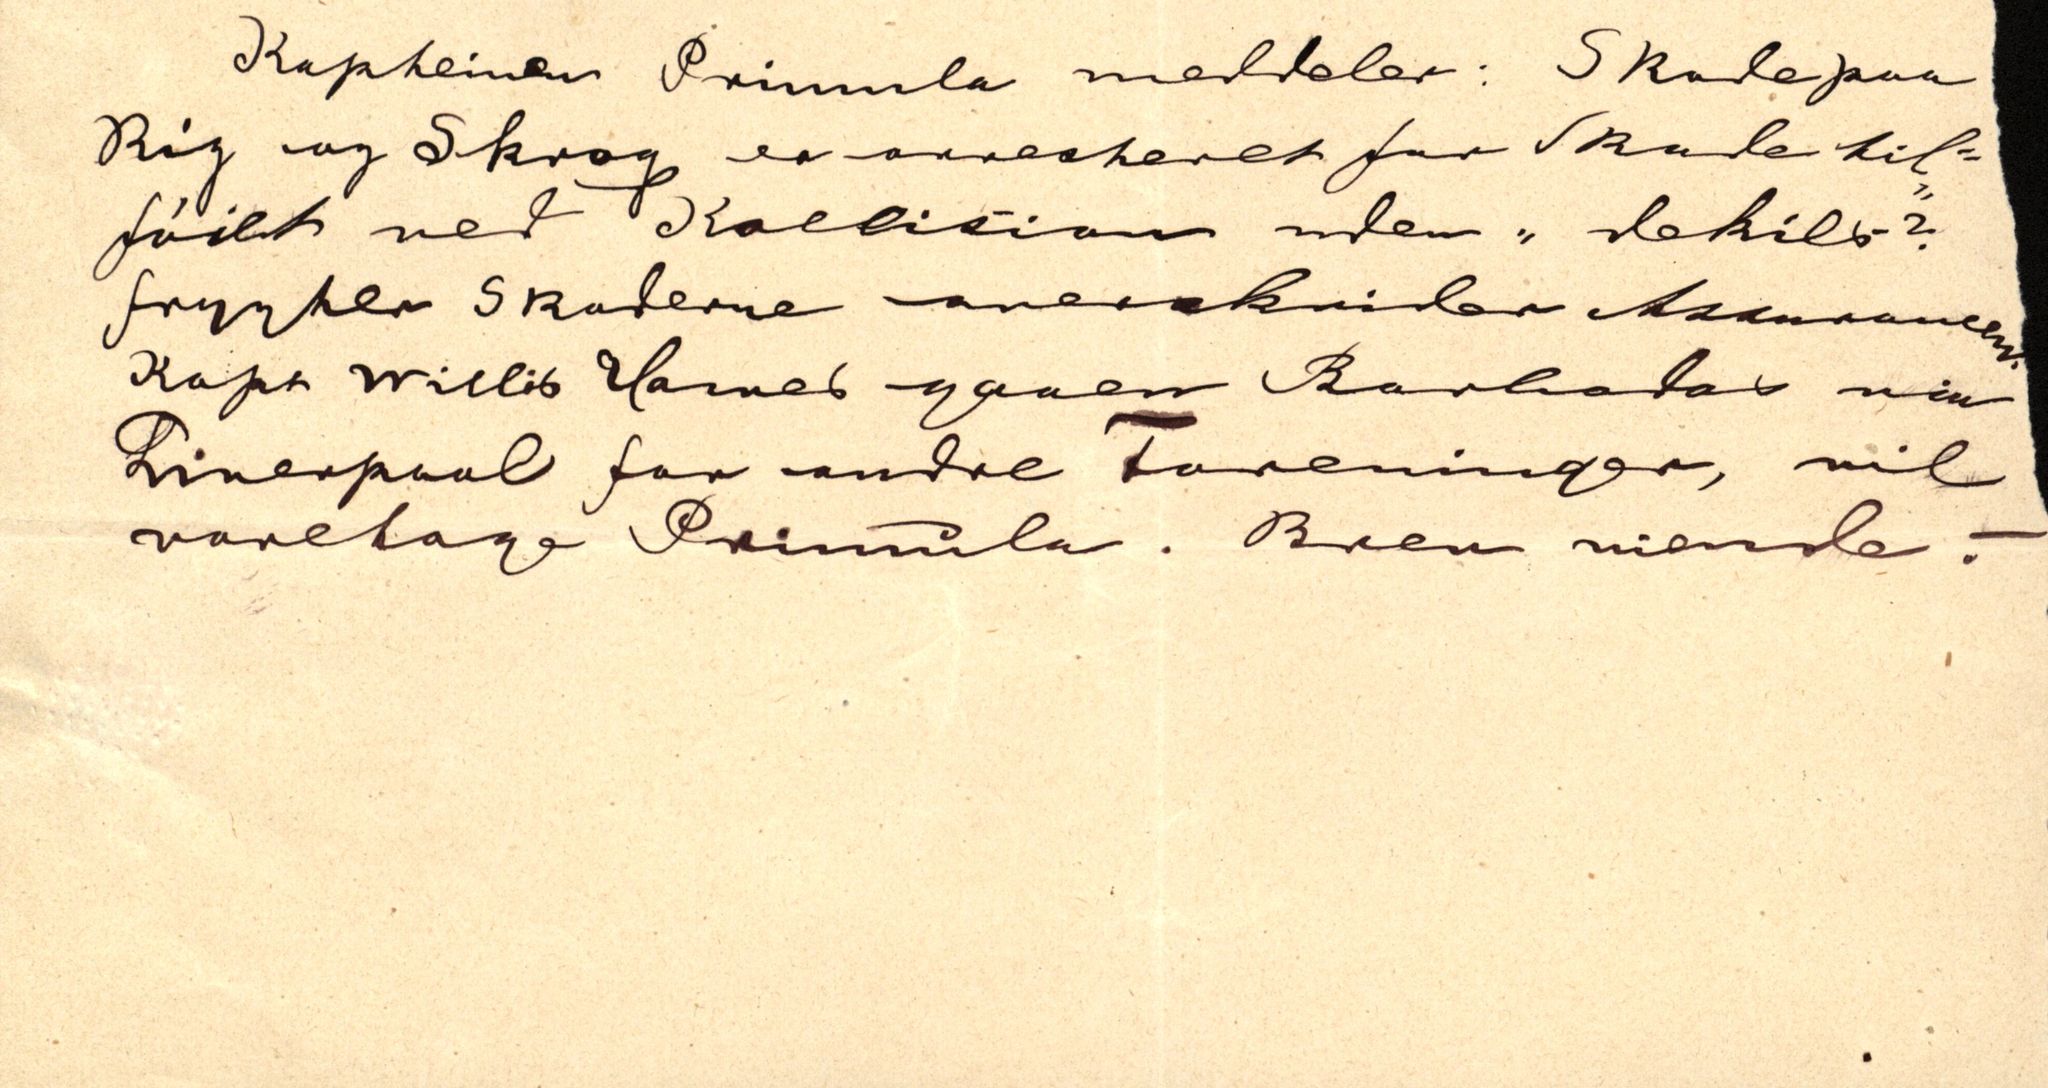 Kapteinen Primula meddeler: Skade paa
Rig og Skrog er arresteret for Skade til=
föiet ved Kollision uden „ dekils"?
frygter Skaderne overskrider Assurancen.
Kapt Willis Hames gaaen Barbados via
Liverpool for andre Foreninger, vil
varetage Primula. Brev niende. –